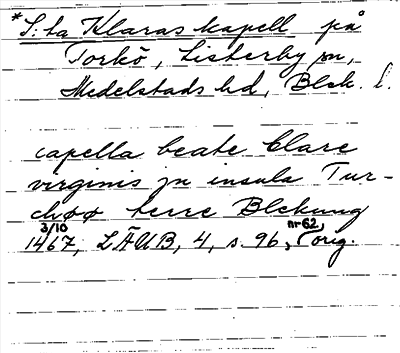 *S:ta Klaras kapell på
Torkö, Listerby sn,
Medelstads hd, Blek. l.
capella beate Clare
virginis jn insula Tur-
chøø terre Blekung
3/10 1467, LÄUB, 4, s. 96, nr 62, orig.